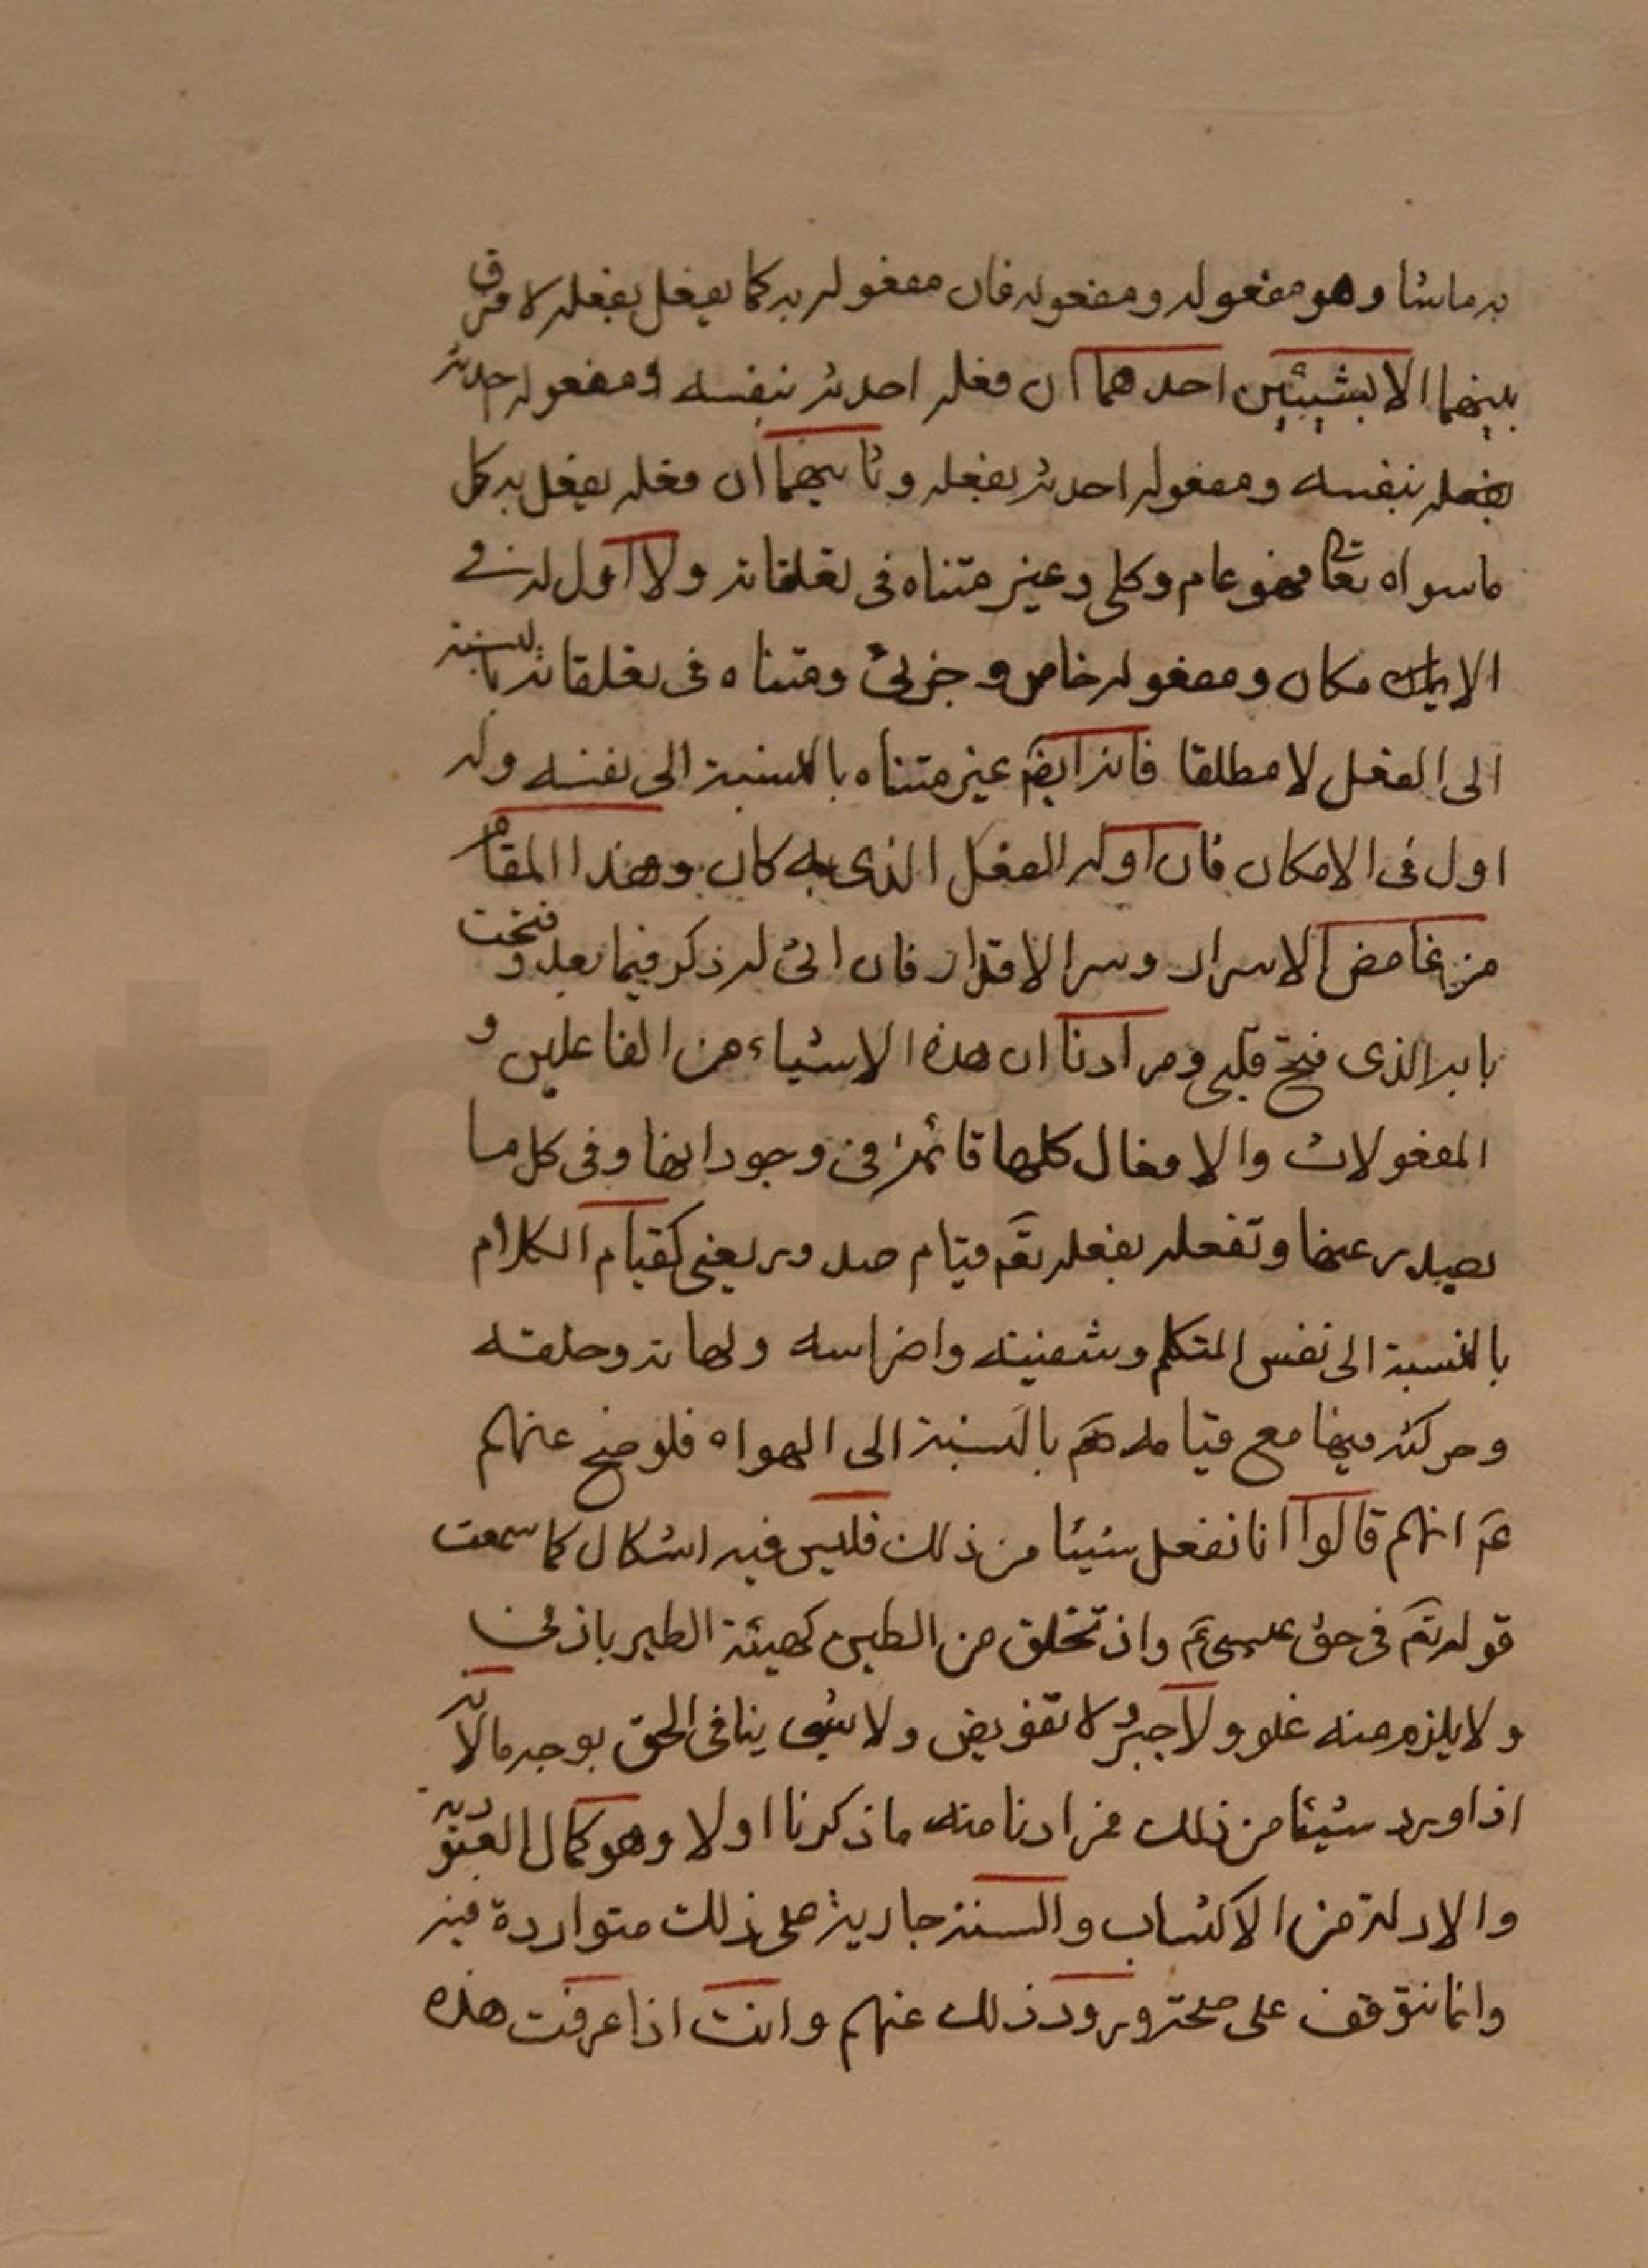 به ماشا وهو مفعوله ومفعوله فان مفعوله به كما يفعل بفعله لا فرق
بينهما الا بشيئين احدهما ان فعله احدثه بنفسه ومفعوله احدثه
بفعله بنفسه ومفعوله احدثه بفعله وثانيهما ان فعله يفعل به كل
ما سواه تعالى فهو عام وكلى وغير متناه فى تعلقاته ولا اول له فى
مكان ومفعوله خاص وجزئى ومتناه فى تعلقاته بالنسبة
الى الفعل لا مطلقا فانه ايضم غير متناه بالنسبة الى نفسه وله
اول فى الامكان فان اوله الفعل الذى به كان وهذا المقام
من غامض الاسرار وسر الاقدار فان اتى له ذكر فيما بعد فتحت
بابه الذى فتح قلبى ومرادنا ان هذه الاشياء من الفاعلين و
المفعولات والافعال كلها قائمة فى وجوداتها وفى كل ما
يصدر عنها وتفعله بفعله تعم قيام صدور يعنى كقيام الكلام
بالنسبة الى نفس المتكلم وشفتيه واضراسه ولهاته وحلقه
وحركته فيها مع قيامه بالنسبة الى الهواء فلو صح عنهم
عم انهم قالوا انا نفعل شيئا من ذلك فليس فيه اشكال كما سمعت
قوله تعم فى حق عيسى عم واذ تخلق من الطين كهيئة الطير باذنى
ولا يلزم منه غلو ولا جبر ولا تفويض ولا شىء ينافى الحق بوجه ما لانه
اذا ورد شيئا من ذلك فمرادنا منه ما ذكرنا اولا وهو كمال العبودية
والادلة من الاكتساب والسنة جارية على ذلك متواردة فيه
وانما نتوقف على صحة ورود ذلك عنهم وانت اذا عرفت هذه